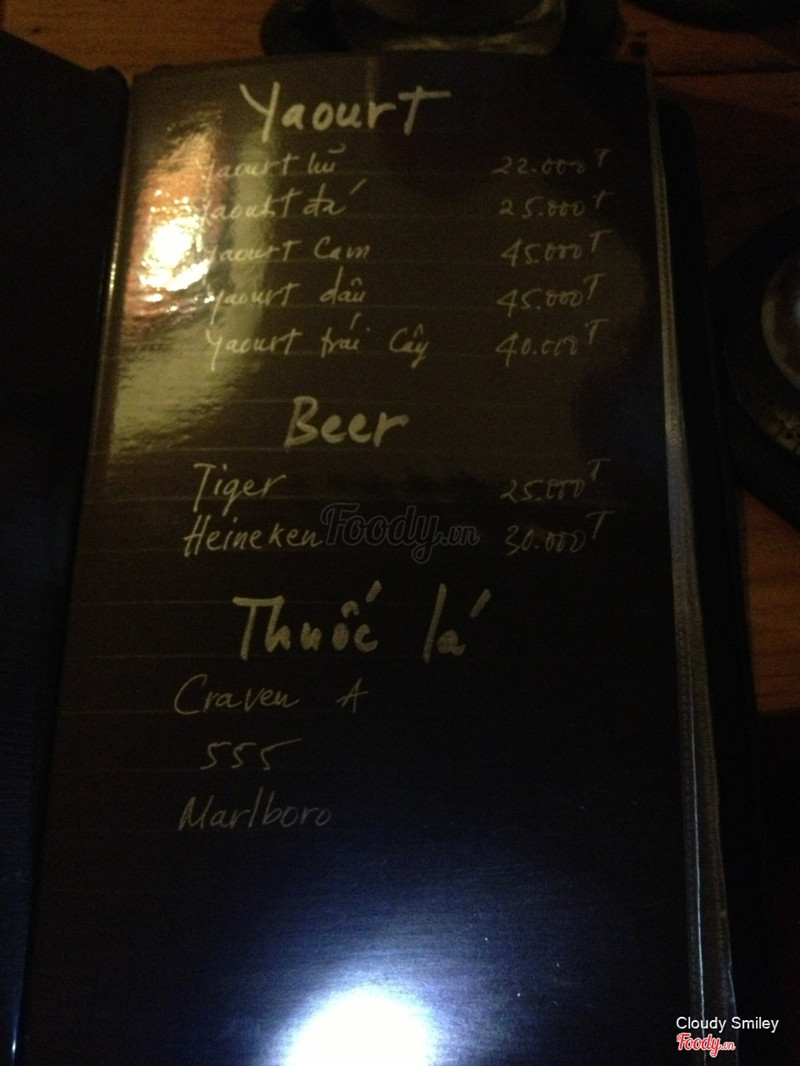 Yaourt
Yaourt hủ 22.000T
Yaourt đá 25.000T
Yaourt Cam 45.000T
Yaourt dâu 45.000T
Yaourt trái Cây 40.000T
Beer
Tiger 25.000T
Heineken 30.000T
Foody.vn
Thuốc lá
Craven A
555
Marlboro
Cloudy Smiley
Foody.vn